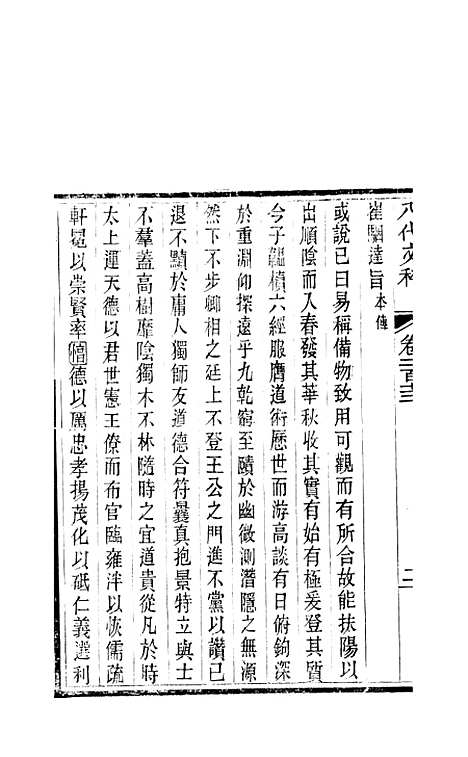 八代文粹 卷二百三 二
崔駰達旨本傳
或說己曰易稱備物致用可觀而有所合故能扶陽以
出順陰而入春發其華秋收其實有始有極爰登其質
今子韞櫝六經服膺道術歷世而游高談有日俯鉤深
於重淵仰探遠乎九乾窮至賾於幽微測潛隱之無源
然下不步卿相之廷上不登王公之門進不黨以讚己
退不黷於庸人獨師友道德合符曩真抱景特立與士
不羣蓋高樹靡陰獨木不林隨時之宜道貴從凡於時
太上運天德以君世憲王僚而布官臨雍泮以恢儒疏
軒冕以崇賢率惇德以厲忠孝揚茂化以砥仁義選利